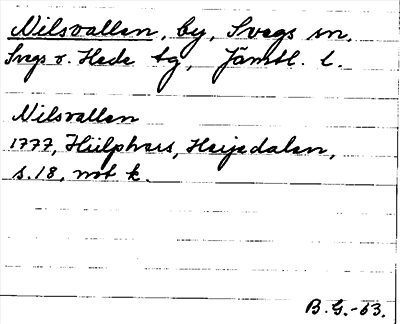 Nilsvallen, by, Svegs sn,
Svegs o. Hede tg, Jämtl. l.
Nilsvallen
1777, Hülphers, Herjedalen,
s. 18, not k.
B. G. -63.